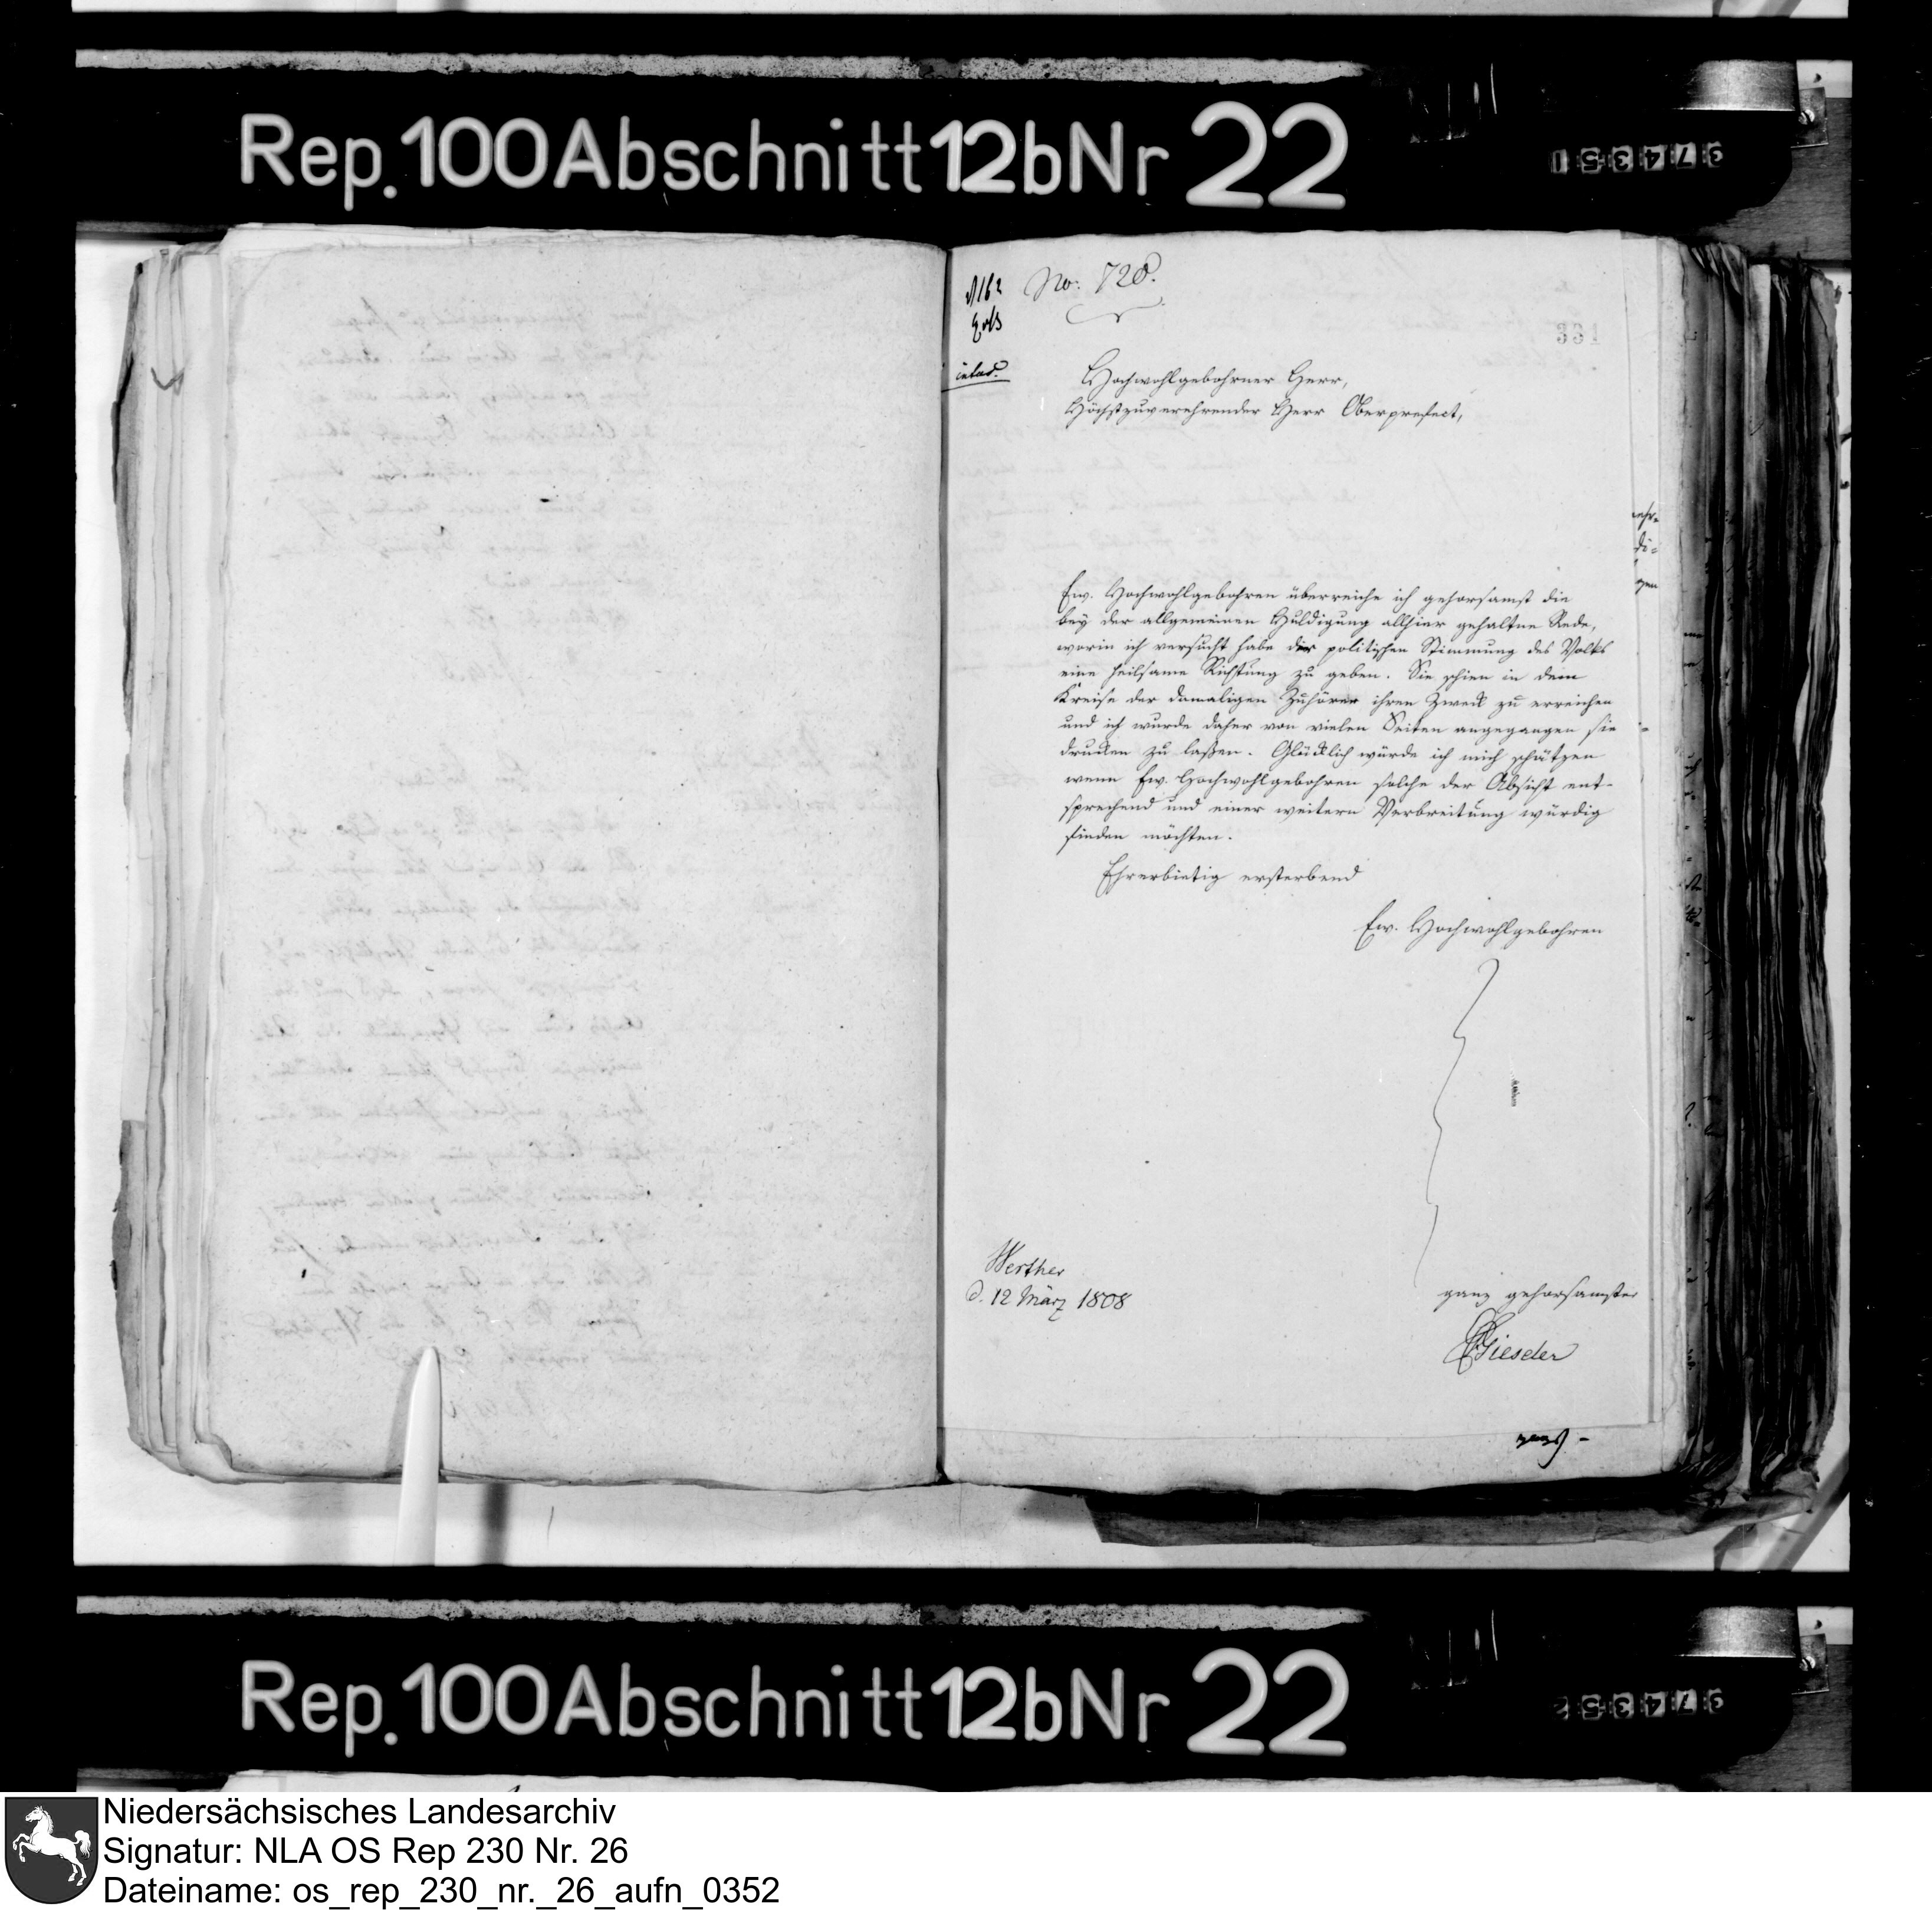 Rep. 100 Abschnitt 12b Nr 22
No. 728.
331
Hochwohlgebohrner Herr,
Höchstzuverehrender Herr Oberprefect,
Ew. Hochwohlgebohren überreiche ich gehorsamst die
bey der allgemeinen Huldigung allhier gehaltne Rede,
worin ich versucht habe der politischen Stimmung des Volks
eine heilsame Richtung zu geben. Sie schien in dem
Kreise der damaligen Zuhörer ihren Zweck zu erreichen
und ich wurde daher von vielen Seiten angegangen sie
drucken zu laßen. Glücklich würde ich mich schätzen
wenn Ew. Hochwohlgebohren solche der Absicht ent-
sprechend und einer weitern Verbreitung würdig
finden möchten.
Ehrerbietig ersterbend
Ew. Hochwohlgebohren
Werther
d. 12 März 1808
ganz gehorsamster
Gieseler
Rep. 100 Abschnitt 12b Nr 22
Niedersächsisches Landesarchiv
Signatur: NLA OS Rep 230 Nr. 26
Dateiname: os_rep_230_nr._26_aufn_0352